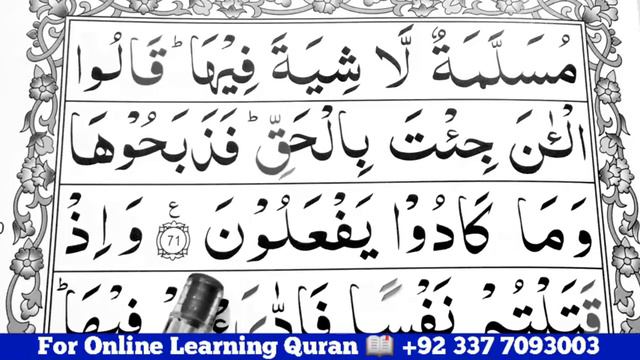 مُسَلَّمَةٌ لَّا شِيَةَ فِيْهَا ؕ قَالُوا
الْـٰٔنَ جِئْتَ بِالْحَقِّ ؕ فَذَبَحُوْهَا
وَمَا كَادُوْا يَفْعَلُوْنَ ع 71 وَاِذْ
قَتَلْتُمْ نَفْسًا فِيْهَا ؕ
For Online Learning Quran 📖 +92 337 7093003